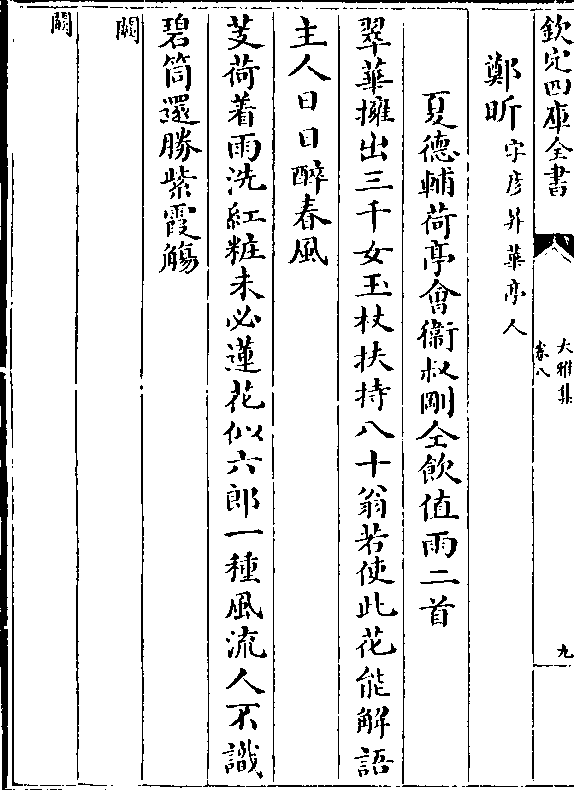 欽定四庫全書
大雅集
卷八
九
鄭昕字彥昇華亭人
夏德輔荷亭會衞叔剛仝飲值雨二首
翠華擁出三千女玉杖扶持八十翁若使此花能解語
主人日日醉春風
芰荷着雨洗紅粧未必蓮花似六郎一種風流人不識
碧筒還勝紫霞觴
闕
闕